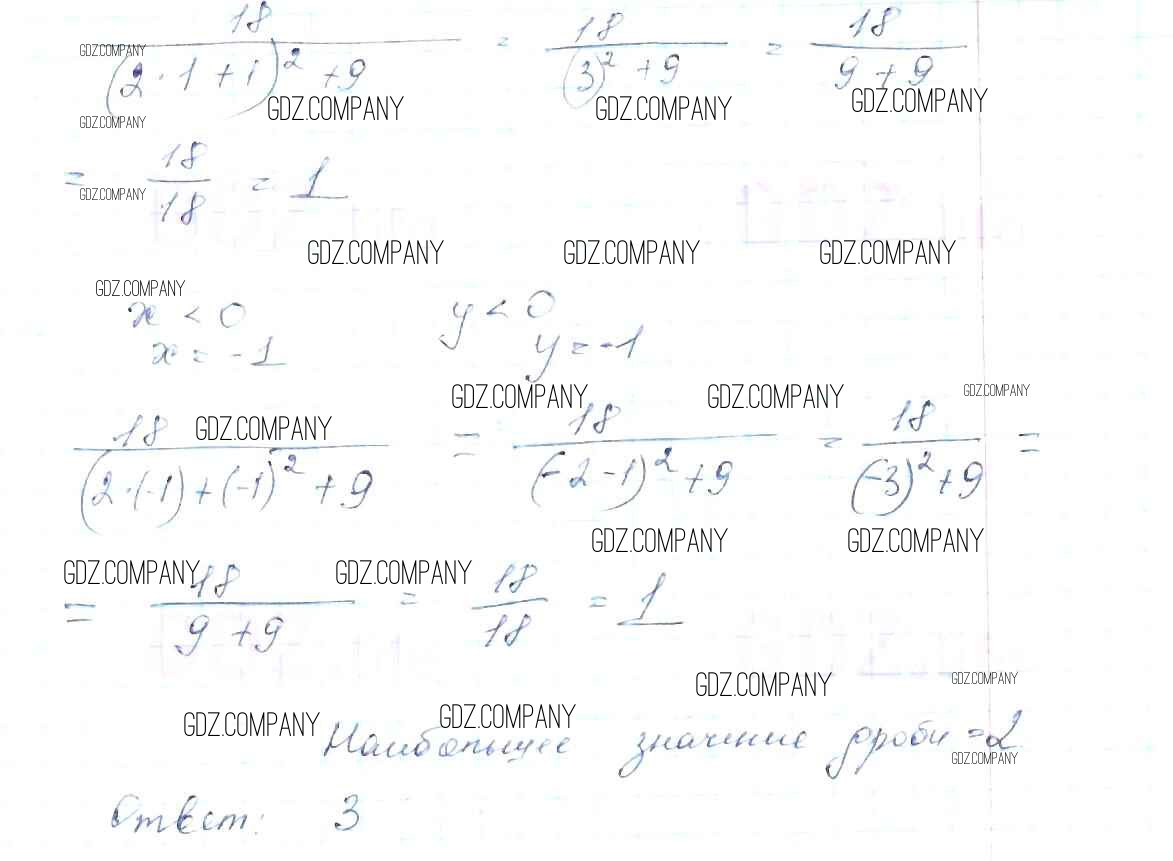 18 / (2·1+1)² +9 = 18 / (3)² +9 = 18 / 9+9
GDZ.COMPANY
GDZ.COMPANY GDZ.COMPANY GDZ.COMPANY
GDZ.COMPANY
= 18 / 18 = 1
GDZ.COMPANY
GDZ.COMPANY GDZ.COMPANY GDZ.COMPANY
GDZ.COMPANY
x < 0 y < 0
x = -1 y = -1
GDZ.COMPANY GDZ.COMPANY GDZ.COMPANY
GDZ.COMPANY
18 / (2·(-1)+(-1))² +9 = 18 / (-2-1)² +9 = 18 / (-3)² +9 =
GDZ.COMPANY GDZ.COMPANY
GDZ.COMPANY GDZ.COMPANY
= 18 / 9+9 = 18 / 18 = 1
GDZ.COMPANY GDZ.COMPANY
GDZ.COMPANY GDZ.COMPANY
Наибольшее значение дроби = 2
GDZ.COMPANY
Ответ: 3